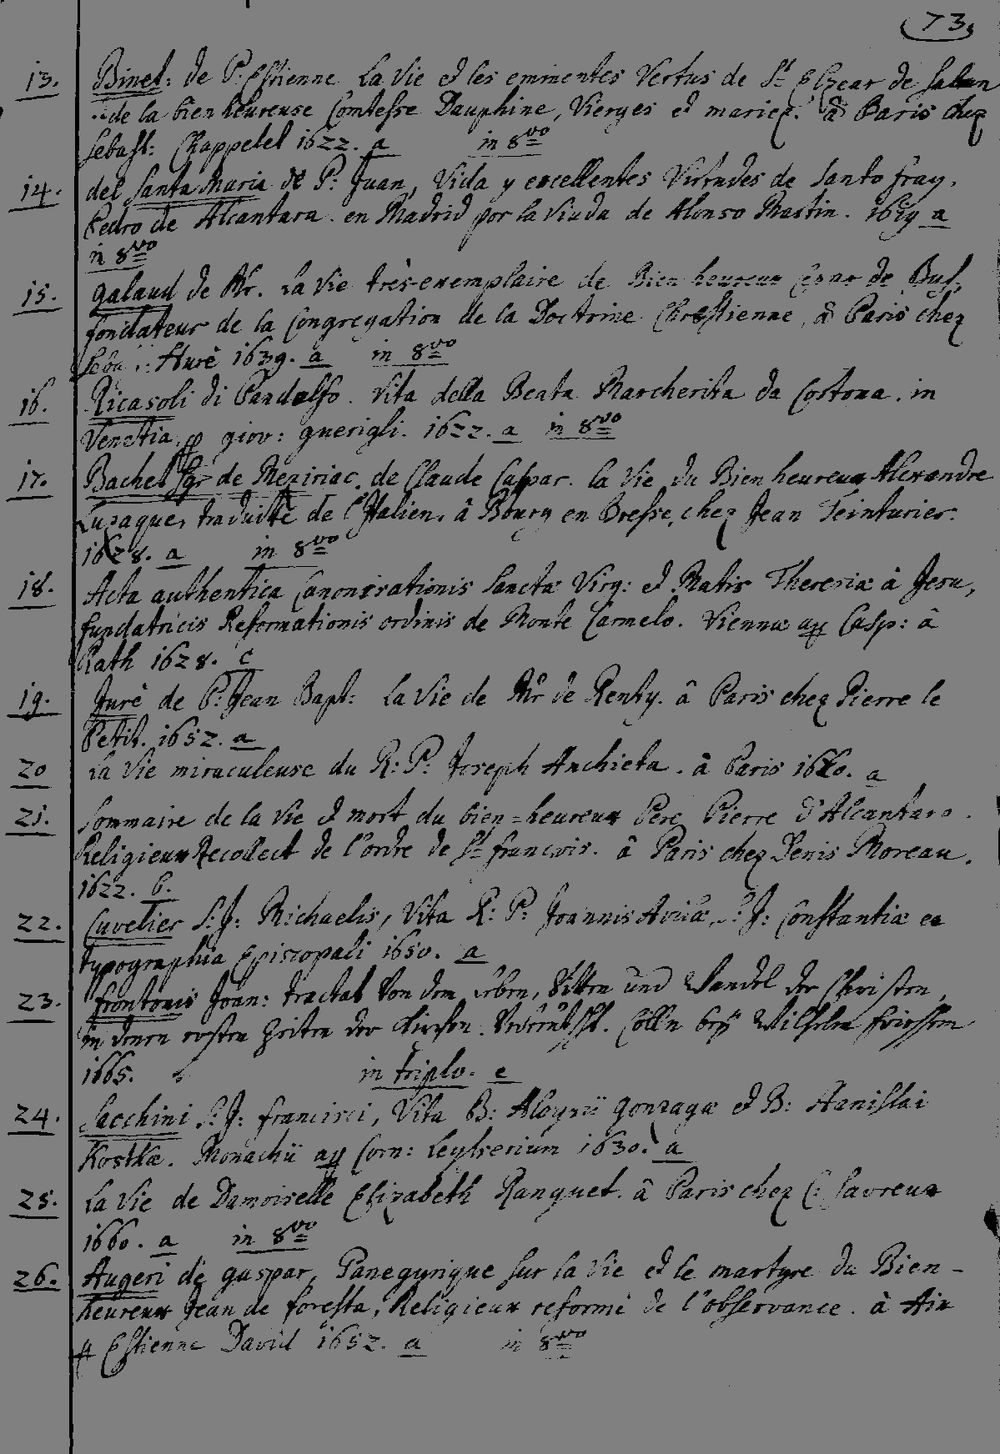 73.
13. Binet: de P. Estienne la vie et les eminentes Vertus de St. Elzear de Sabran
de la bien heureuse Comtesse Dauphine, Vierges et mariez. â Paris chez
Sebast: Chappelet 1622. a in 8vo
14. del Santa Maria de P: Juan, Vida y excellentes Virtudes de Santo fray.
Pedro de Alcantara. en Madrid por la Viuda de Alonso Martin. 1619 a
in 8vo
15. Galaud de Mr. la vie très-exemplaire de Bien heureux Cesar de Bus,
fondateur de la Congregation de la Doctrine Chrestienne, â Paris chez
Seba: Huré 1639. a in 8vo
16. Ricasoli di Pandolfo. Vita della Beata Margherita da Cortona. in
Venetia, p giov: guerigli. 1622. a in 8vo
17. Bachet Sgr de Meziriac. de Claude Caspar. la vie du Bien heureux Alexandre
Luzague, traduite de l'Italien, à Bourg en Bresse, chez Jean Teinturier.
1628. a in 8vo
18. Acta authentica Canonizationis Sanctæ Virg: et Matris Theresiæ à Jesu,
fundatricis Reformationis ordinis de Monte Carmelo. Viennæ ap Casp: â
Rath 1628. c
19. Juré de P: Jean Bapt: la vie de Mr de Renty. â Paris chez Pierre le
Petit. 1652. a
20 la Vie miraculeuse du R: P: Joseph Anchieta. â Paris 1660. a
21. Sommaire de la vie et mort du bien=heureux Pere Pierre d'Alcantara.
Religieux Recollect de l'ordre de St. francois. â Paris chez Denis Moreau.
1622. b.
22. Cuvelier S: J: Michaelis, Vita R: P: Joannis Avilæ, S: J: Constantiæ ex
typographia Episcopali 1650. a
23. frontonis Joan: tractat Von dem Leben, Sitten und Wandel der Christen,
in denen ersten Zeiten der Kirchen. Cölln bey Wilhelm friessem
1665. in triplo. e
24. Sacchini S: J: francisci, Vita B: Aloysii Gonzagæ et B: Stanislai
Kostkæ. Monachii ap Corn: Leysserium 1630. a
25. la Vie de Damoiselle Elizabeth Ranquet. â Paris chez C: Savreux
1660. a in 8vo
26. Augeri de Gaspar, Panegyrique sur la vie et le martyre du Bien-
heureux Jean de foresta, Religieux reformé de l'observance. à Aix
Estienne David 1652. a in 8vo